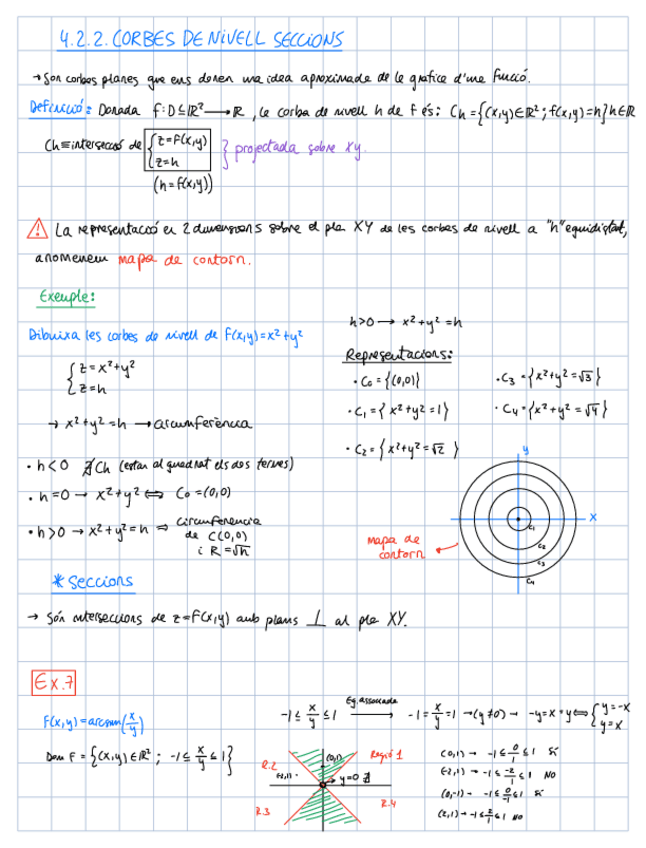 4.2.2. CORBES DE NIVELL SECCIONS
→ Són corbes planes que ens donen una idea aproximada de la gràfica d'una funció.
Definició: Donada f: D⊆ℝ² → ℝ, la corba de nivell h de f és: Ch = {(x,y)∈ℝ²; f(x,y)=h} h∈ℝ
Ch ≡ intersecció de { z=f(x,y) z=h } projectada sobre xy.
(h=f(x,y))
⚠ La representació en 2 dimensions sobre el pla XY de les corbes de nivell a "h" equidistant,
anomenem mapa de contorn.
Exemple:
Dibuixa les corbes de nivell de f(x,y)=x²+y²
{ z=x²+y²
z=h
→ x²+y²=h → circumferència
• h<0 ∄Ch (estan al quadrat els dos termes)
• h=0 → x²+y² ⟺ C₀=(0,0)
• h>0 → x²+y²=h ⇒ circumferencia
de C(0,0)
i R=√h
h>0 → x²+y²=h
Representacions:
• C₀={(0,0)}
• C₁={x²+y²=1}
• C₂={x²+y²=√2}
• C₃={x²+y²=√3}
C₄={x²+y²=√4}
y
x
C₁
C₂
C₃
C₄
mapa de
contorn
* Seccions
→ Són interseccions de z=f(x,y) amb plans ⊥ al pla XY.
Ex.7
f(x,y)=arcsin(x/y)
Dom f={(x,y)∈ℝ²; -1≤x/y≤1}
-1≤x/y≤1 Eq. associada → -1=x/y=1 → (y≠0) → -y=x=y ⟺ { y=-x
y=x
R.2
(0,1)
Regió 1
(-2,1)
y=0 ∄
R.3
R.4
(0,1) → -1≤0/1≤1 Sí
(-2,1) → -1≤-2/1≤1 NO
(0,-1) → -1≤0/-1≤1 Sí
(2,1) → -1≤2/1≤1 NO